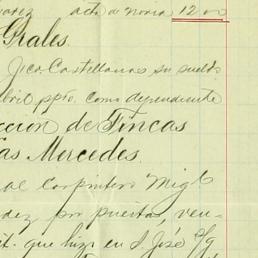 varez acta de noria 12.00
Grales.
Jca Castellanos su sueldo
bril ppto. como dependiente
ccion de Fincas
as Mercedes.
al Carpintero Migl
dez por puertas, ven-
it. que hizo en S. José c/g